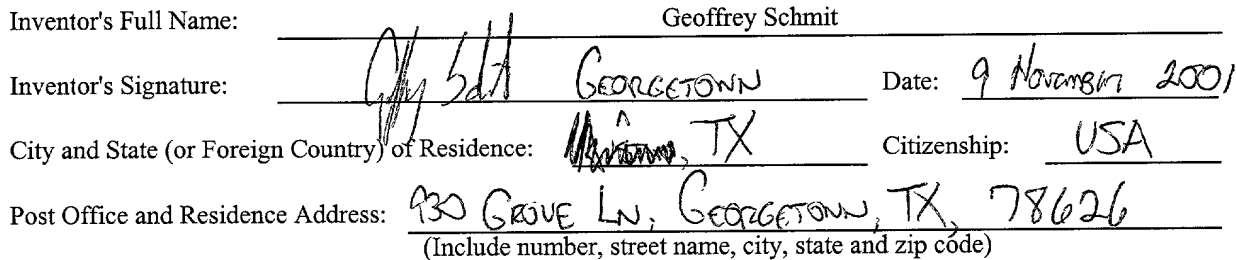 Inventor's Full Name: Geoffrey Schmit
Inventor's Signature: Date: 9 November 2001
GEORGETOWN
City and State (or Foreign Country) of Residence: , TX Citizenship: USA
Post Office and Residence Address: 930 GROVE LN, GEORGETOWN, TX, 78626
(Include number, street name, city, state and zip code)